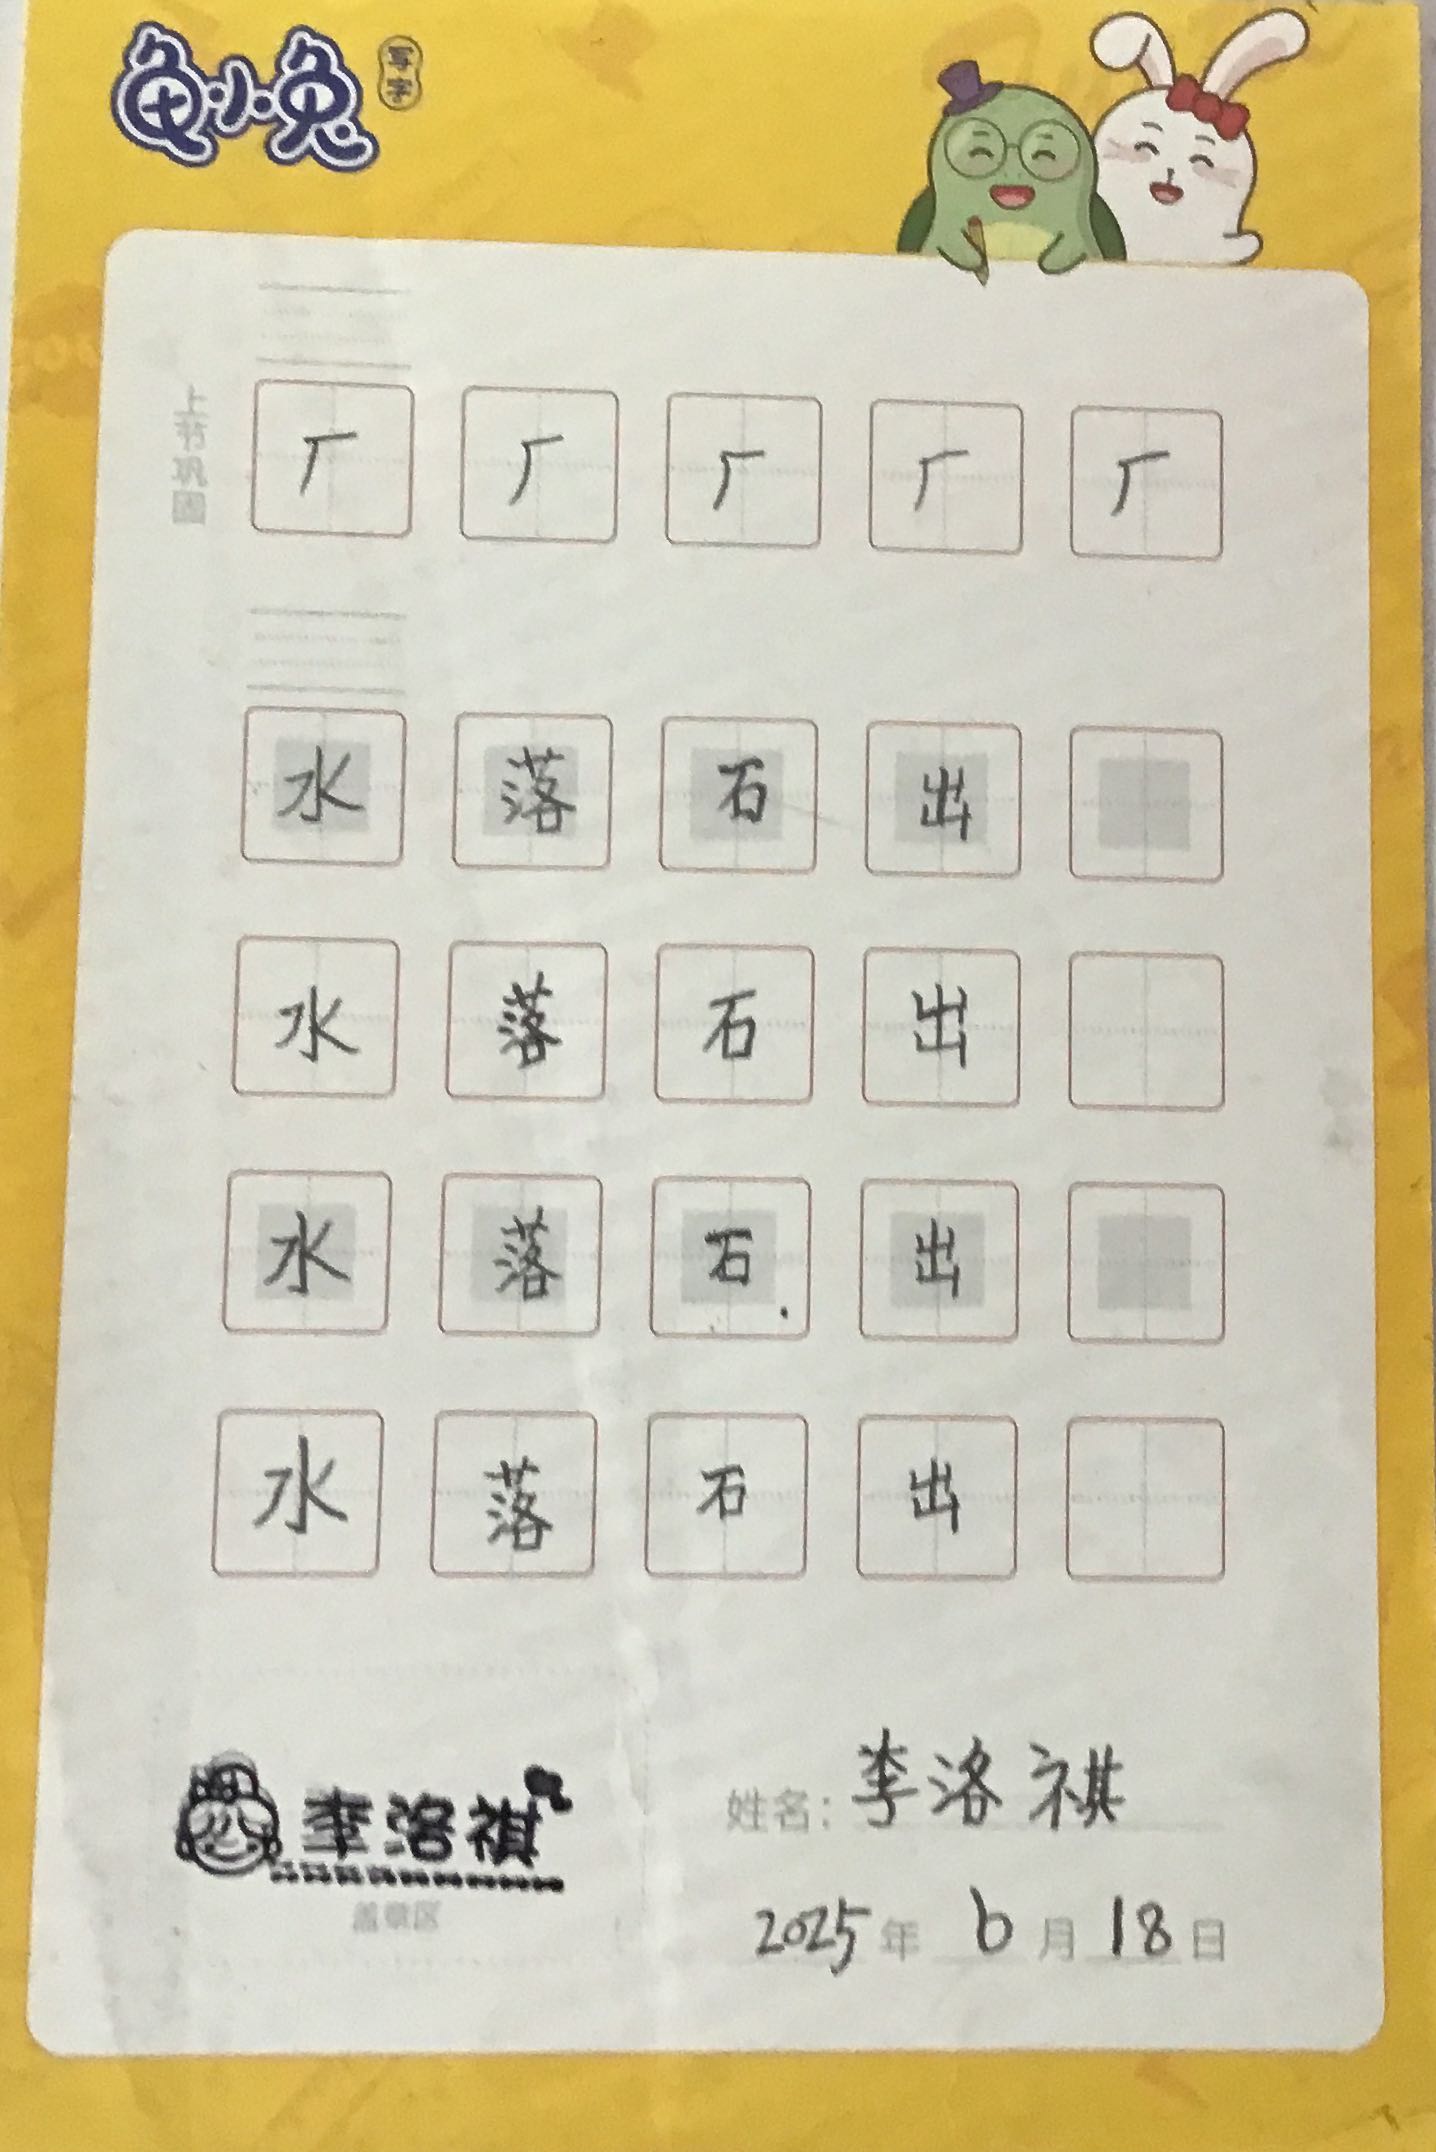 龟小兔 写字
上节巩固
厂 厂 厂 厂 厂
水 落 石 出
水 落 石 出
水 落 石 出
水 落 石 出
李洛祺
盖章区
姓名: 李洛祺
2025年 6月 18日